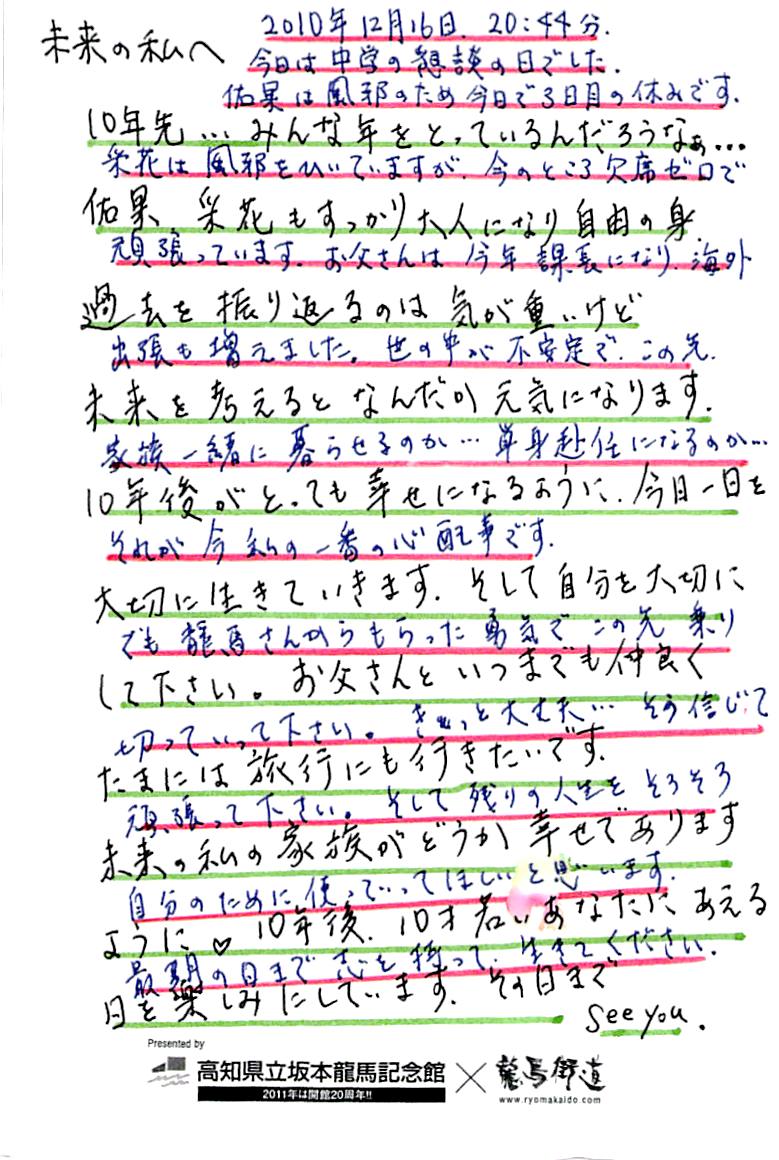 未来の私へ
10年先…みんな年をとっているんだろうなぁ…
佑果、采花もすっかり大人になり自由の身
過去を振り返るのは気が重いけど
未来を考えるとなんだか元気になります。
10年後がとっても幸せになるように、今日一日を
大切に生きていきます。そして自分を大切に
して下さい。お父さんといつまでも仲良く
たまには旅行にも行きたいです。
未来の私の家族がどうか幸せであります
ように♡ 10年後、10才若いあなたにあえる
日を楽しみにしています。その日まで
see you.
2010年12月16日、20:44分。
今日は中学の懇談の日でした。
佑果は風邪のため今日で3日目の休みです。
采花は風邪をひいていますが、今のところ欠席ゼロで
頑張っています。お父さんは今年課長になり、海外
出張も増えました。世の中が不安定で、この先、
家族一緒に暮らせるのか…単身赴任になるのか…
それが今私の一番の心配事です。
でも龍馬さんからもらった勇気でこの先乗り
切っていって下さい。きっと大丈夫…そう信じて
頑張って下さい。そして残りの人生をそろそろ
自分のために使っていってほしいと思います。
最期の日まで志を持って、生きてください。
Presented by
高知県立坂本龍馬記念館 × 龍馬街道
2011年は開館20周年!!
www.ryomakaido.com